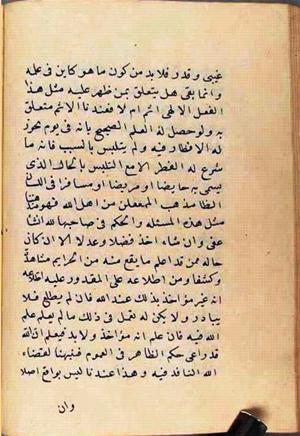 غيبى وقدر فلا بد من كون ما هو كاين فى علمه
وانما بقى هل يتعلق بمن ظهر عليه مثل هذا
الفعل الالهى اثم ام لا فعندنا الاثم متعلق
به ولو حصل له العلم الصحيح بانه فى يوم يجوز
له الافطار فيه ولم يتلبس بالسبب فانه ما
شرع له الفطر الا مع التلبس بالحال الذى
يسمى به حايضا او مريضا او مسافرا فى اللسان
الظاهر مذهب المحققين من اهل الله فهو مثل هنا
مثل هذه المسئله والحكم فى صاحبها لله ان شا
عفى وان شاء اخذ فضلا وعدلا الا ان كان
حاله ممن قد اعلم ما يقع منه من الجرايم مشاهدة
وكشفا ومن اطلاعه على المقدور عليه
انه غير مؤاخذ بذلك عند الله فان لم يطلع فلا
يبادر ولا يكن له تعمل فى ذلك ما لم يعلم علم
الله فيه فان علم انه مؤاخذ ولا بد فيعلم ان الله
قد راعى حكم الظاهر فى العموم فتهيئنا لقضاء
الله النافذ فيه وهذا عندنا ليس بواقع اصلا
وان